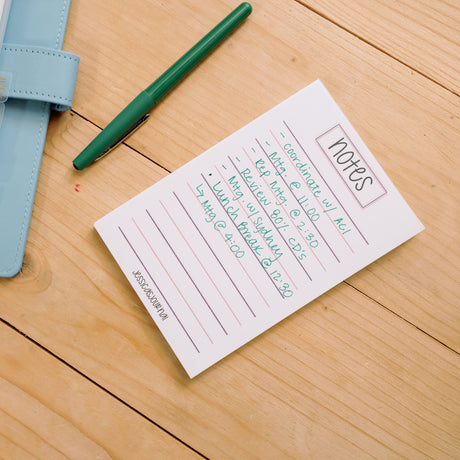 notes
- coordinate w/ ACI
- Mtg. @ 11:00
- Rep Mtg. @ 2:30
- Review 80% CD's
- Mtg. w/ Sydney
• Lunch Break @ 12:30
↳ Mtg @ 4:00
jessicasjournal